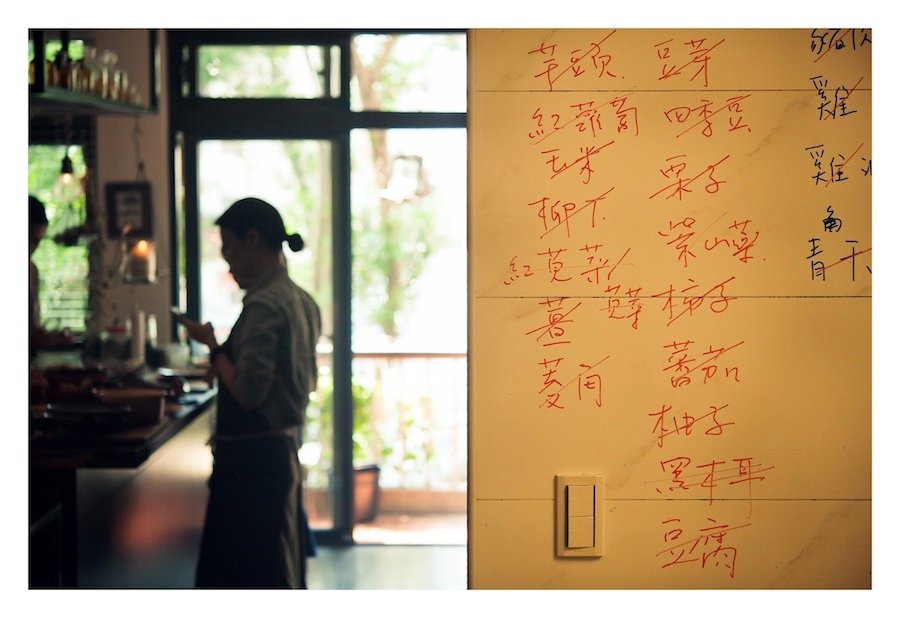 芋頭
紅蘿蔔
玉米
柳丁
紅莧菜
莧菜
薑
菱角
豆芽
四季豆
栗子
紫山藥
柿子
蕃茄
柚子
黑木耳
豆腐
雞
雞
角
青干